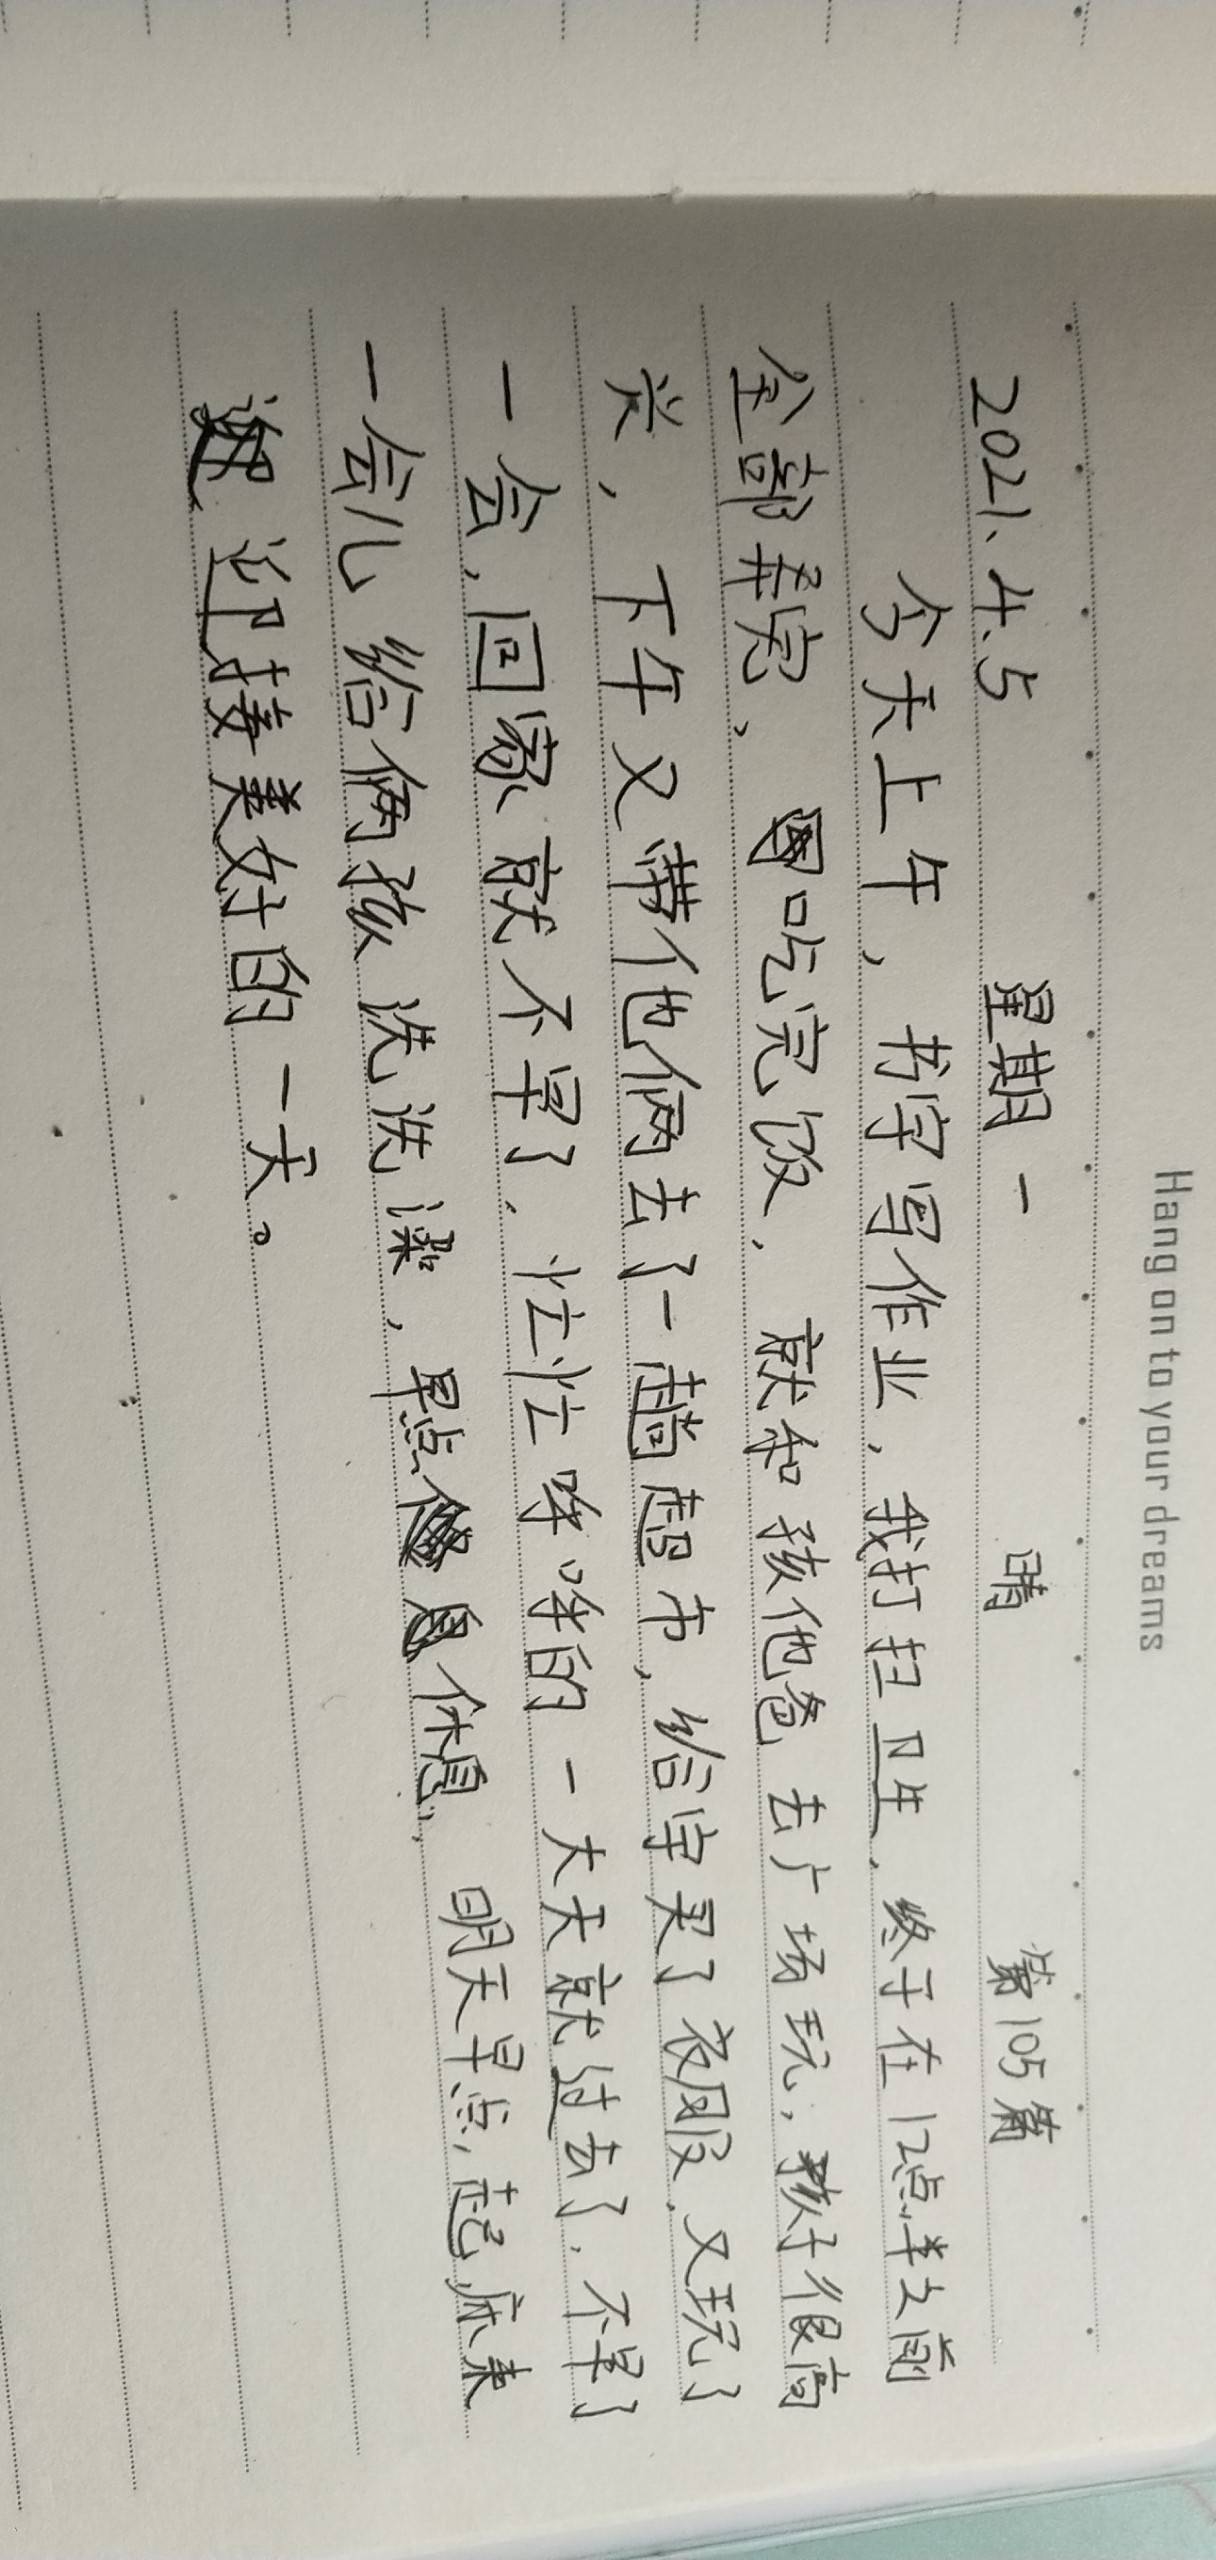 Hang on to your dreams
2021、4、5 星期一 晴 第105篇
今天上午，书宇写作业，我打扫卫生，终于在12点半之前
全部弄完，吃完饭，就和孩他爸去广场玩，孩子很高
兴，下午又带他俩去了一趟超市，给宇买了衣服，又玩了
一会，回家就不早了，忙忙哗哗的一大天就过去了，不早了
一会儿给俩孩洗洗澡，早点休息，明天早点起床来
迎接美好的一天。